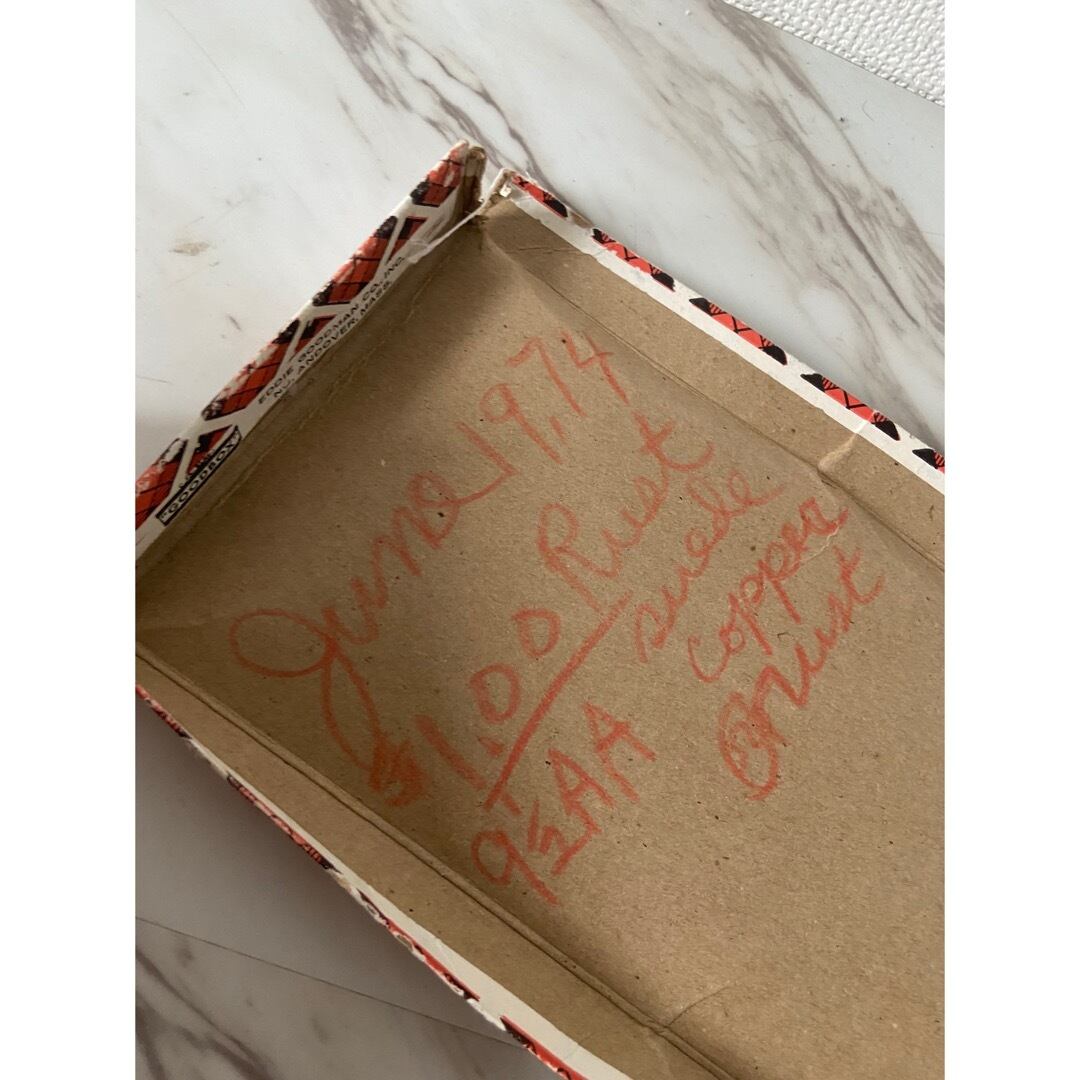 EDDIE GOODMAN CO., INC.
NO. ANDOVER, MASS.
"GOODBOX"
June 1974
$1.00 Rust
suede
9½ AA copper
Rust